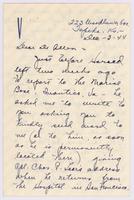 223 Woodlawn Ave
Topeka, Ks.,
Dec-2-44
Dear Dr Allen:
Just before Harold
left two weeks ago
to report to the Marine
Base Quantico, Va - he
asked me to write to
you asking you to
kindly send word to
me (or to him, as soon
as he is permanently
located here) giving
Cpl. Chas. P. address
when he returns from
the Hospital in San Francisco.